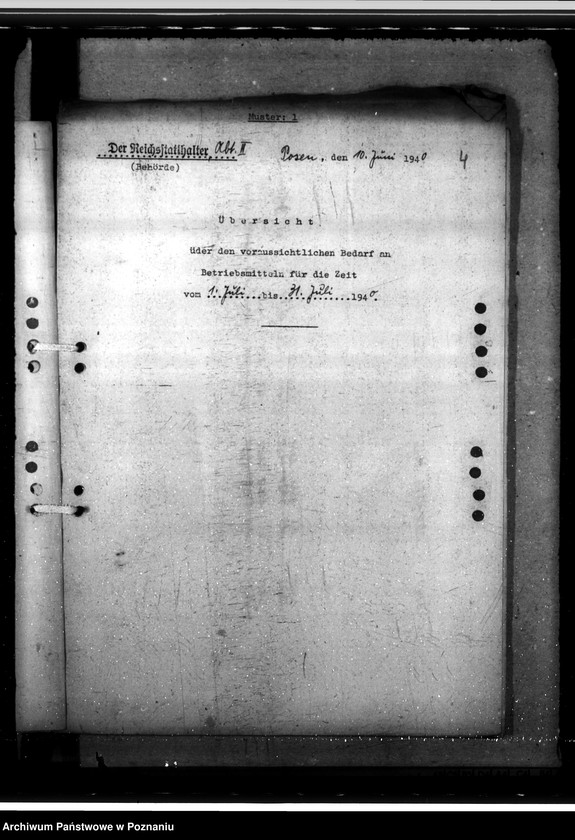 Muster: 1
Der Reichsstatthalter Abt. II
(Behörde)
Posen, den 10. Juni 1940
4
Übersicht
über den voraussichtlichen Bedarf an
Betriebsmitteln für die Zeit
vom 1. Juli bis 31. Juli 1940.
Archiwum Państwowe w Poznaniu